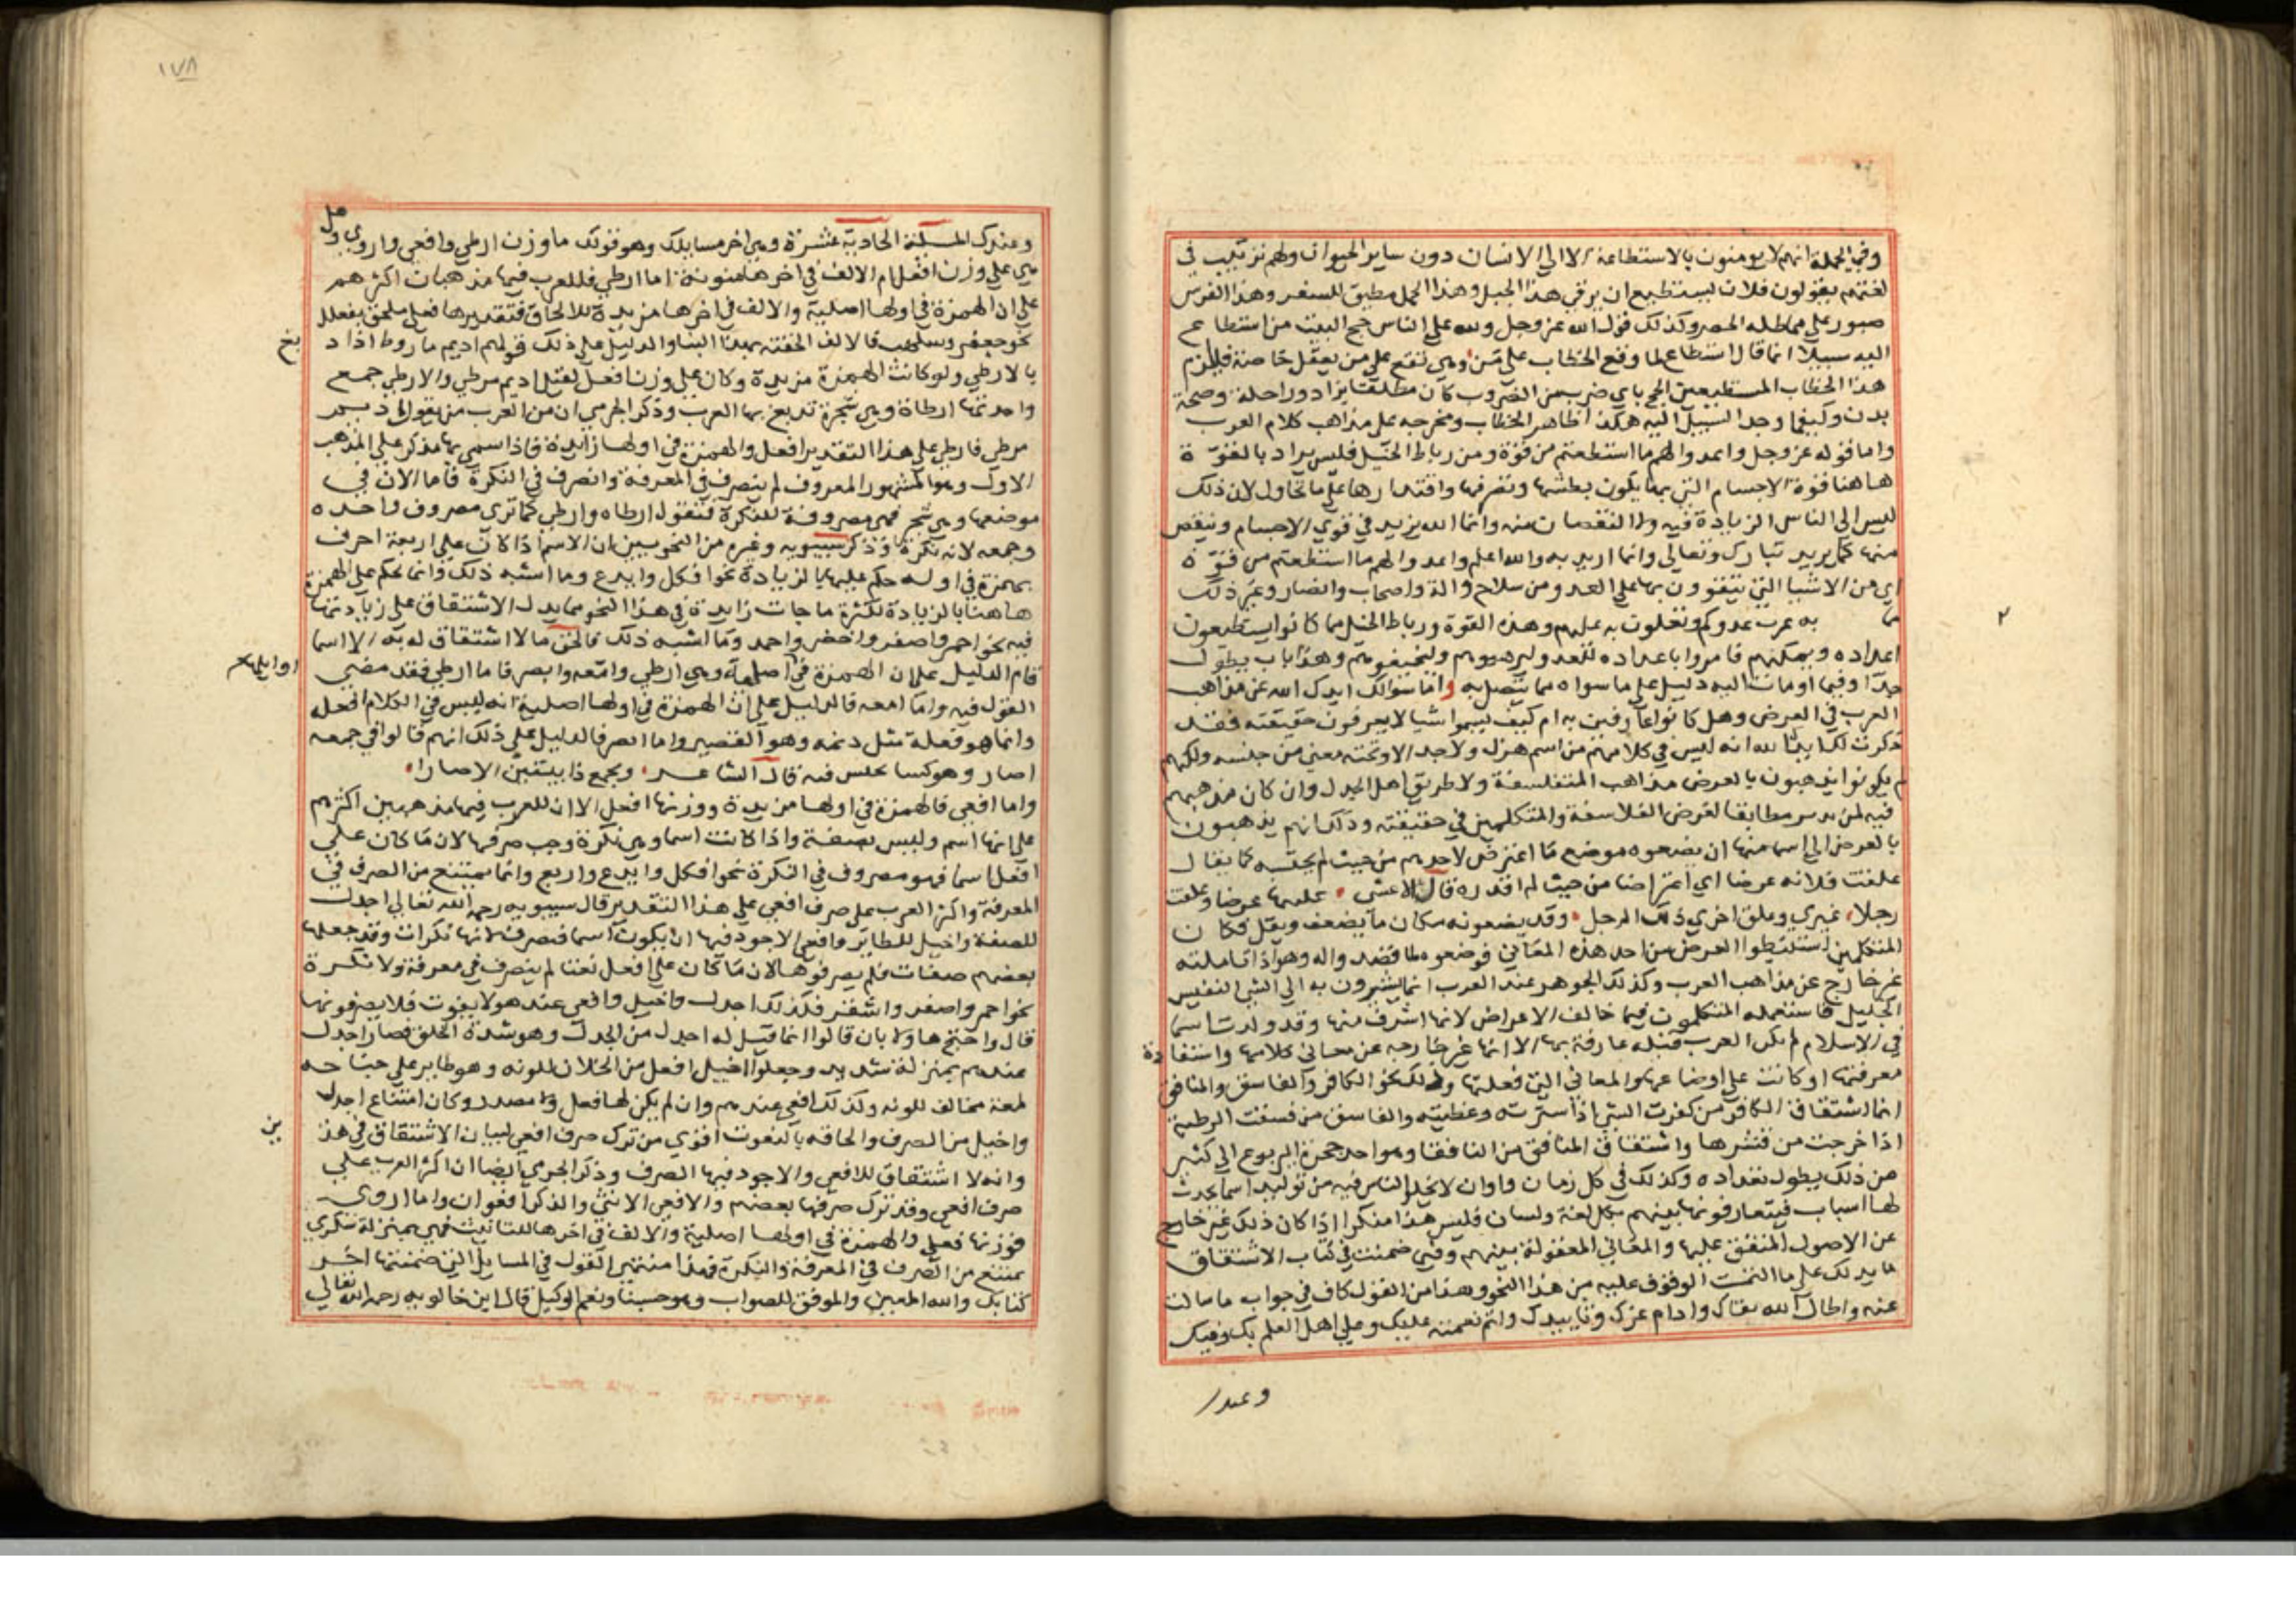 وفي الجملة انهم لا يومنون بالاستطاعة الا الي الانسان دون ساير الحيوان ولهم ترتيب في
لغتهم يقولون فلان يستطيع ان يرقي هذا الجبل وهذا الجمل مطيق للسفر وهذا الفرس
صبور علي مماطلة الحصر وكذلك قول الله عز وجل ولله علي الناس حج البيت من استطاع
اليه سبيلا انما قال استطاع لما وقع الخطاب علي من وهي تقع علي من يعقل خاصة فلزم
هذا الخطاب المستطيعين الحج باي ضرب من الضروب كان مطلقا بزاد وراحلة وصحة
بدن وكيفما وجد السبيل اليه هكذا ظاهر الخطاب ومخرجه علي مذاهب كلام العرب
واما قوله عز وجل واعدوا لهم ما استطعتم من قوة ومن رباط الخيل فليس يراد بالقوة
هاهنا قوة الاجسام التي بها يكون بطشها وتصرفها واقتدارها علي ما تحاول لان ذلك
ليس الي الناس الزيادة فيه ولا النقصان منه وانما الله يزيد في قوي الاجسام وينقص
منها كما يريد تبارك وتعالي وانما اريد به والله اعلم واعدوا لهم ما استطعتم من قوة
اي من الاشيا التي تتقوون بها علي العدو من سلاح والة واصحاب وانصار وغير ذلك
مما به عدوكم وتعلون به عليهم وهذه القوة ورباط الخيل مما كانوا يستطيعون
اعداده ويمكنهم فامروا باعداده للعدو وليرهبوهم وليخيفوهم وهذا باب يطول
جدا وفيما اومات اليه دليل علي ما سواه مما يتصل به واما سوالك ايدك الله عن مذاهب
العرب في العرض وهل كانوا عارفين به ام كيف سموا شيا لا يعرفون حقيقته فقد
ذكرت لك ابينا لله انه ليس في كلامهم من اسم هزل ولا جد الا وتحته معني من جنسه ولكنهم
لم يكونوا يذهبون بالعرض مذاهب المتفلسفة ولا طريق اهل الجدل وان كان مذهبهم
فيه لمن مطابقا لغرض الفلاسفة والمتكلمين في حقيقته وذلك انهم يذهبون
بالعرض الي اسما منها ان يضعوه موضع ما اعترض لاحدهم من حيث لم يحتسبه كما يقال
علقت فلانة عرضا اي اعتراضا من حيث لم اقدره قال الاعشي علقتها عرضا وعلقت
رجلا غيري وعلق اخري ذلك الرجل وقد يضعونه مكان ما يضعف ويقل فكان
المتكلمين استنبطوا العرض من احد هذه المعاني فوضعوه لما قصدوا له وهو اذا تاملته
غير خارج عن مذاهب العرب وكذلك الجوهر عند العرب انما يشيرون به الي الشي النفيس
الجليل فاستعمله المتكلمون فيما خالف الاعراض لانها اشرف منها وقد ولدت اسما
في الاسلام لم تكن العرب قبله عارفة بها الا انها غير خارجة عن معاني كلامها واستفادة
معرفتها او كانت علي اوضاعها والمعاني التي فعلتها وذلك نحو الكافر والفاسق والمنافق
انما اشتقاق الكافر من كفرت الشي اذا سترته وغطيته والفاسق من فسقت الرطبة
اذا خرجت من قشرها واشتقاق المنافق من النافقا وهو احد جحرة اليربوع الي كثير
من ذلك يطول تعداده وكذلك في كل زمان واوان لا يخلوا الناس فيه من توليد اسما يحدث
لها اسباب فيتعارفونها بينهم بكل لغة ولسان فليس هذا منكرا اذا كان ذلك غير خارج
عن الاصول المتفق عليها والمعاني المعقولة بينهم وفي ضمنت في كتاب الاشتقاق
ما يدلك علي ما التمست الوقوف عليه من هذا النحو وهذا من القول كاف في جواب ما سالت
عنه واطال الله بقاك وادام عزك وتاييدك واتم نعمته عليك وعلي اهل العلم بك وفيك
وعندك
١٧٨
وعندك المسئلة الحادية عشرة وهي اخر مسايلك وهو قولك ما وزن ارطي وافعي واروي وهل
هي علي وزن افعل ام الالف في اخرها منونة اما ارطي فللعرب فيها مذهبان اكثرهم
علي ان الهمزة في اولها اصلية والالف في اخرها مزيدة للالحاق فتقديرها فعلي ملحق بفعلل
نحو جعفر وسلهب فالالف الحقته بهذا البنا والدليل علي ذلك قولهم اديم ماروط اذا د
بغ
بالارطي ولو كانت الهمزة مزيدة وكان علي وزن افعل لقيل اديم مرطي والارطي جمع
واحدتها ارطاة وهي شجرة تدبغ بها العرب وذكر الجرمي ان من العرب من يقول اديم
مرطي فارطي علي هذا التقدير افعل والهمزة في اولها زايدة فاذا سمي بها مذكر علي المذهب
الاول وهو المشهور المعروف لم ينصرف في المعرفة وانصرف في النكرة فاما الان في
موضعها وهي شجر فهي مصروفة للنكرة فتقول ارطاه وارطي كما تري مصروف واحده
وجمعه لانه نكرة وذكر سيبويه وغيره من النحويين ان الاسم اذا كان علي اربعة احرف
بهمزة في اوله حكم عليها بالزيادة نحو افكل وايدع وما اشبه ذلك وانما يحكم علي الهمزة
هاهنا بالزيادة لكثرة ما جات زايدة في هذا النحو مما يدل الاشتقاق علي زيادتها
فيه نحو احمر واصفر واخضر واحمد وما اشبه ذلك فالحق ما لا اشتقاق له به الا اسما
قام الدليل علي ان الهمزة في اصلية وهي ارطي وامعه وابصر فاما ارطي فقد مضي
اوايلها
القول فيه واما امعه فالدليل علي ان الهمزة في اولها اصلية انه ليس في الكلام افعلة
وانما هو فعلة مثل دنمه وهو القصير واما ايصر فالدليل علي ذلك انهم قالوا في جمعه
اصار وهو كسا فيه قال الشاعر ويجمع ذا بينهن الاصارا
واما افعي فالهمزة في اولها مزيدة ووزنها افعل الا ان للعرب فيها مذهبين اكثرهم
علي انها اسم وليس بصفة واذا كانت اسما وهي نكرة وجب صرفها لان ما كان علي
افعل اسما فهو مصروف في النكرة نحو افكل وايدع واربع وانما يمتنع من الصرف في
المعرفة واكثر العرب علي صرف افعي علي هذا التقدير قال سيبويه رحمه الله تعالي اجدل
للصقر واخيل للطائر وافعي الاجود فيها ان يكون اسما فيصرف لانها نكرات وقد جعلها
بعضهم صفات فلم يصرفوها لان ما كان علي افعل نعتا لم ينصرف في معرفة ولا نكرة
نحو احمر واصفر واشقر فكذلك اجدل واخيل وافعي عند هولا يفوت فلا يصرفونها
قال واحتج هاولا بان قالوا انما قيل له اجدل من الجدل وهو شدة الخلق فصار اجدل
عندهم بمنزلة شديد وجعلوا اخيل افعل من الخيلان للونه وهو طاير علي جناحه
لمعة مخالف للونه وكذلك افعي عندهم وان لم يكن لها فعل ولا مصدر وكان امتناع اجدل
واخيل من الصرف والحاقه بالنعوت اقوي من ترك صرف افعي لبيان الاشتقاق في هذ
ين
وانه لا اشتقاق للافعي والاجود فيها الصرف وذكر الجرمي ايضا ان اكثر العرب علي
صرف افعي وقد ترك صرفها بعضهم والافعي الانثي والذكر افعوان واما اروي
فوزنها فعلي والهمزة في اولها اصلية والالف في اخرها للتانيث فهي بمنزلة سكري
يمتنع من الصرف في المعرفة والنكرة فهذا منتهي القول في المسايل التي ضمنتها اخر
كتابك والله المعين والموفق للصواب وهو حسبنا ونعم الوكيل قال ابن خالويه رحمه الله تعالي